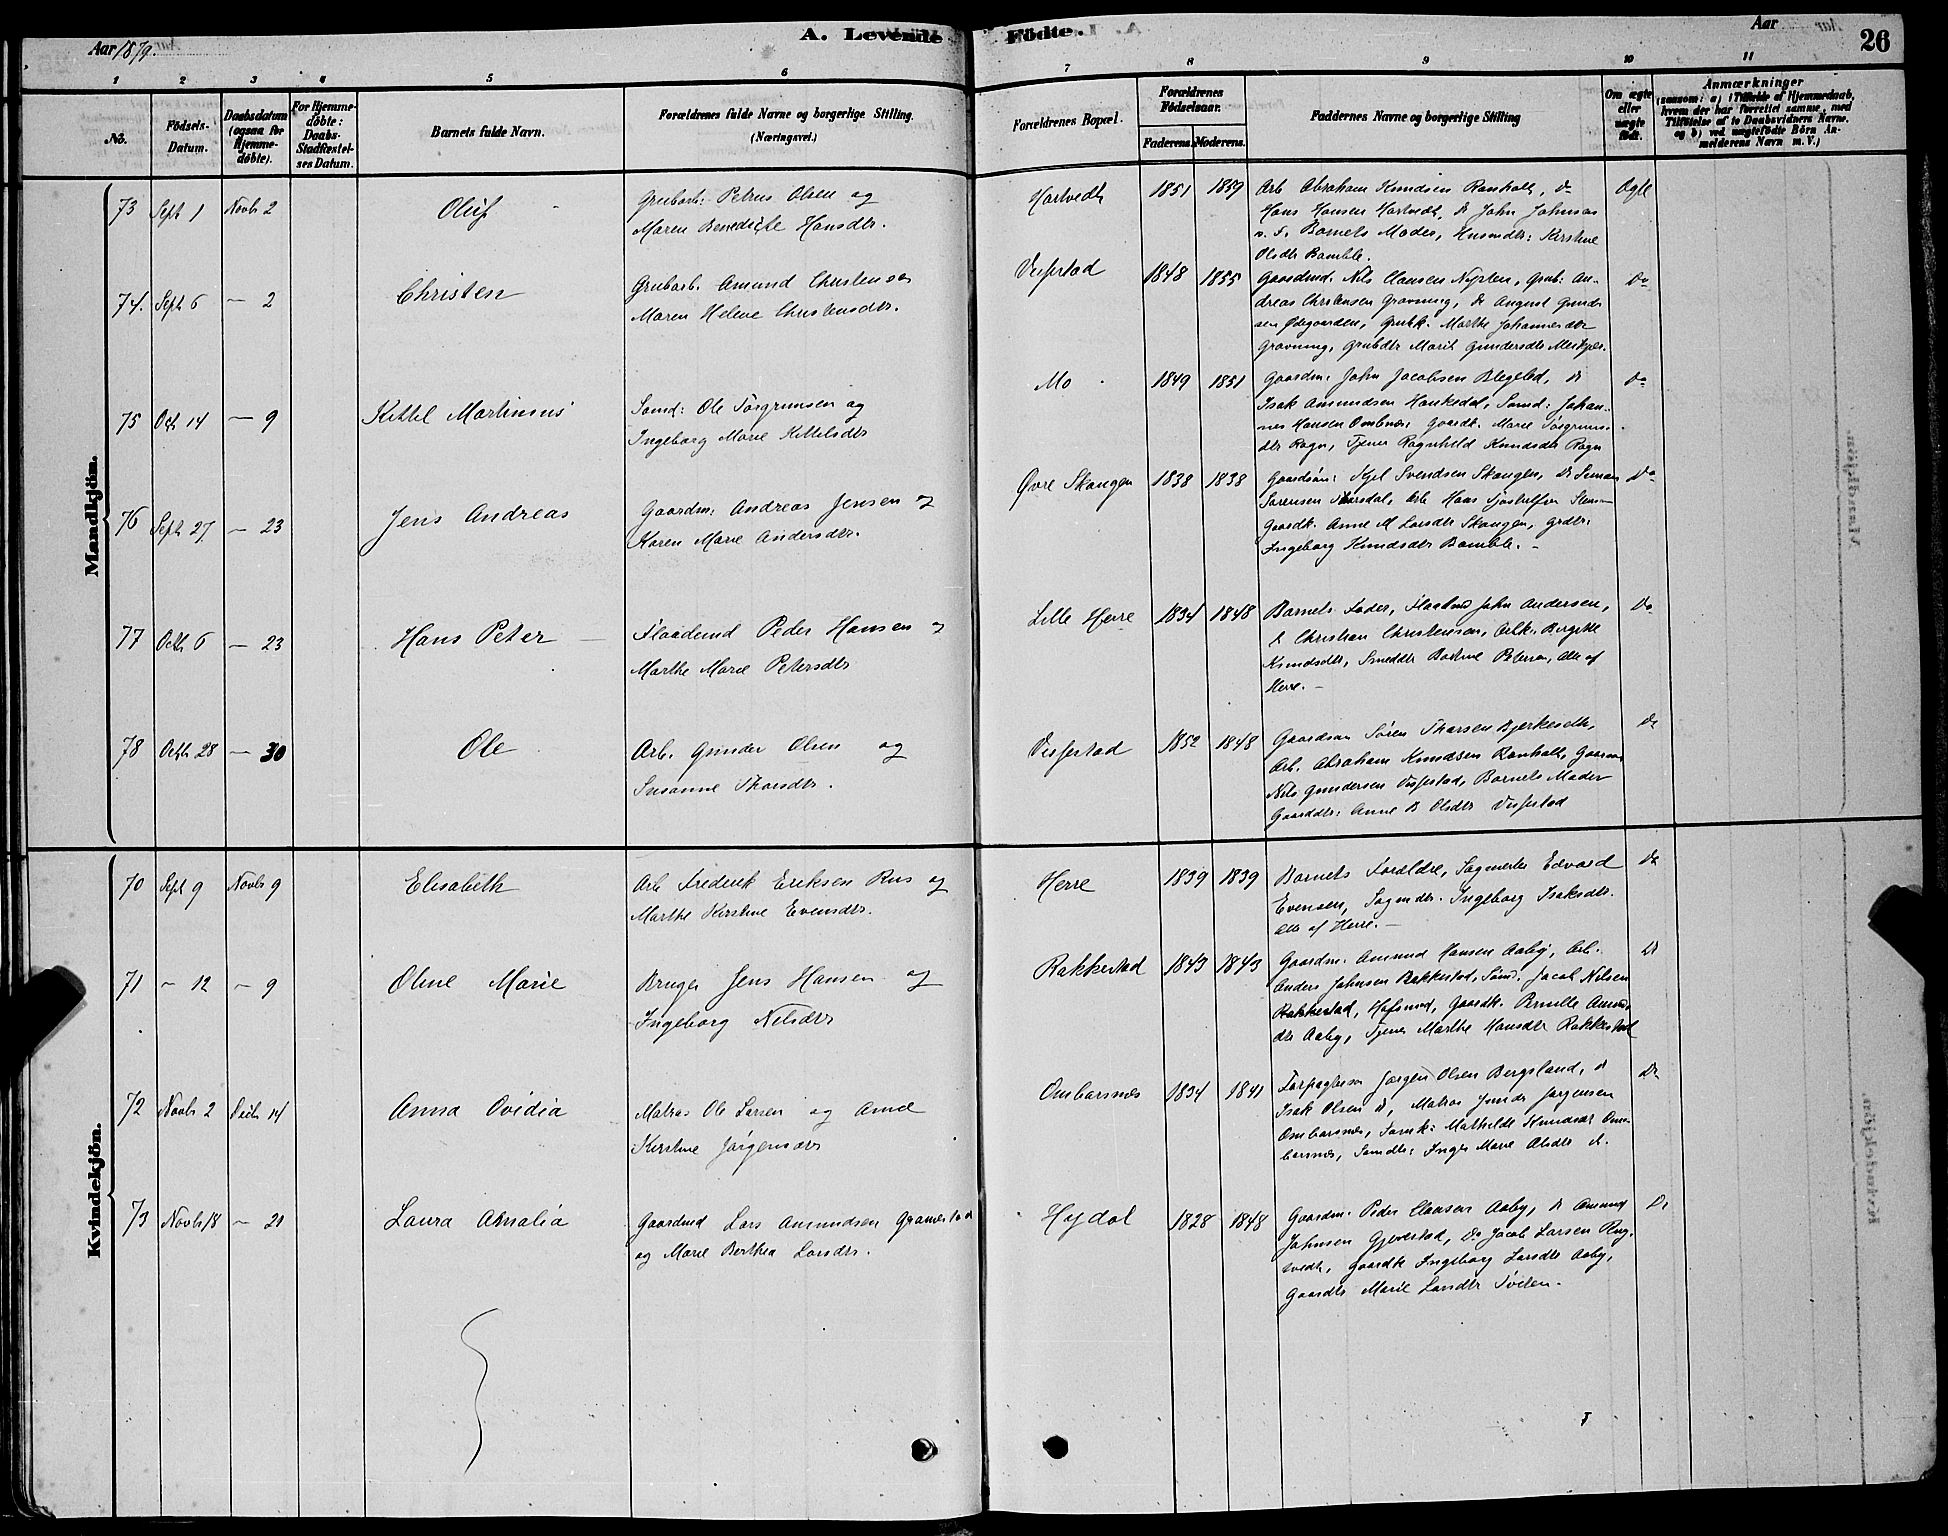 Aar 1879.
A. Levende Födte.
Aar
26
1 2 3 4 5 6 7 8 9 10 11
No.
Födsels-Datum.
Daabsdatum (ogsaa for Hjemmedöbte).
For Hjemmedöbte: Daabs-Stadfæstelses Datum.
Barnets fulde Navn.
Forældrenes fulde Navne og borgerlige Stilling. (Næringsvei.)
Forældrenes Bopæl.
Forældrenes Födselsaar.
Faderens. Moderens.
Faddernes Navne og borgerlige Stilling
Om ægte eller uægte födt.
Anmærkninger
(saasom: a) i Tilfælde af Hjemmedaab, hvem der har forrettet samme, med Tilföielse af to Daabsvidners Navne. og b) ved uægtefödte Börn Anmelderens Navn m. V.)
Mandkjön.
73 Sept 1 Novbr 2 Oluf
Grubarb: Petrus Olsen og
Maren Benedicte Hansdtr.
Hartvedt 1851 1859
Arb Abraham Knudsen Ranholt, do
Hans Hansen Hartvedt, do John Johnsen
n. F. Barnets Moder, Husmdtr: Kirstine
Olsdtr Bamble.
Ægte
74. Sept 6 — 2 Christen
Grubarb. Amund Christensen
Maren Helene Christensdtr.
Vissestad 1848 1855
Gaardmd. Nils Clausen Nysten, Grub: An-
dreas Christensen Gravning, do August Gunder
sen Ødegaarden, Grubk. Marthe Johannesdtr
Gravning, Grubdtr Marit Gundersdtr
Do
75 Octr 14 — 9 Kittel Martinius
Sømd: Ole Torgrimsen og
Ingeborg Marie Kittilsdtr
Mo 1849 1851
Gaardm: John Jacobsen Blegebed, do
Isak Amundsen Haukedal, Sømd: Johan-
nes Hansen Ombnæs, Gaardk. Marie Torgrims-
dtr Ragn, Tjener Ragnhild Knudsdtr Ragn
Do
76 Sept 27 — 23 Jens Andreas
Gaardm: Andreas Jensen og
Karen Marie Andersdtr.
Øvre Skaugen 1838 1838
Gaardsøn: Kjel Svendsen Skaugen, do Simon
Sørensen Aarsdal, Arb Hans
Gaardk. Anne M Larsdtr Skaugen, grdtr:
Ingeborg Knudsdtr Bamble. -
Do
77 Octr 6 — 23 Hans Peter
Flaademd Peder Hansen og
Marthe Marie Petersdtr
Lille Herre 1834 1848
Barnets Fader, Flaademd John Andersen,
do Christian Christensen, Arbk. Birgitte
Knudsdtr, Smeddtr Petersen, Alle af
Herre. —
Do
78 Octbr 28 — 30 Ole
Arb. Gunder Olsen og
Susanne Thorsdtr.
Vissestad 1852 1848
Gaardsøn Søren Thorsen Bjerkeseth,
Arb. Abraham Knudsen Ranholt, Gaardm
Nils Gundersen Vissestad, Barnets Moder
Gaarddtr: Anne B Olsdtr Vissestad
Do
Kvindekjön.
70 Sept 9 Novbr 9 Elisabeth
Arb Frederik Eriksen Rus og
Marthe Kirstine Evensdtr.
Herre 1839 1839
Barnets Foreldre, Sagmester Edvard
Evensen, Sagmdtr. Ingeborg Isaksdtr.
Alle af Herre. —
Do
71 — 12 — 9 Oline Marie
Bruger Jens Hansen og
Ingeborg Nilsdtr
Rakkestad 1843 1843
Gaardm. Amund Hansen Aaby, Arb.
Anders Johnsen Rakkestad, Sømd. Jacob Nilsen
Rakkestad, Hafsund, Gaardk. Pernille Amunds
dtr Aaby, Tjener Marthe Hansdtr Rakkestad
Do
72 Novbr 2 Decbr 14 Anna Ovidia
Matros Ole Larsen og Anne
Kirstine Jørgensdtr
Ombarsnæs 1834 1841
Forpagtersøn Jørgen Olsen Bergsland, do
Isak Olsen do, Matros Gunder Jørgensen
Ombarsnæs, Sømk: Mathilde Knudsdtr Om-
barsnæs, Sømdtr: Inger Marie Olsdtr do.
Do
73 Novbr 18 — 21 Laura Amalia
Gaardmd Lars Amundsen Granestad
og Marie Berthea Larsdtr.
Hydal 1828 1848
Gaardm. Peder Clausen Aaby, do Amund
Johnsen Gjerestad, Do Jacob Larsen Rug-
tvedt, Gaardk Ingeborg Larsdtr Aaby,
Gaarddtr Marie Larsdtr Tveten.
Do